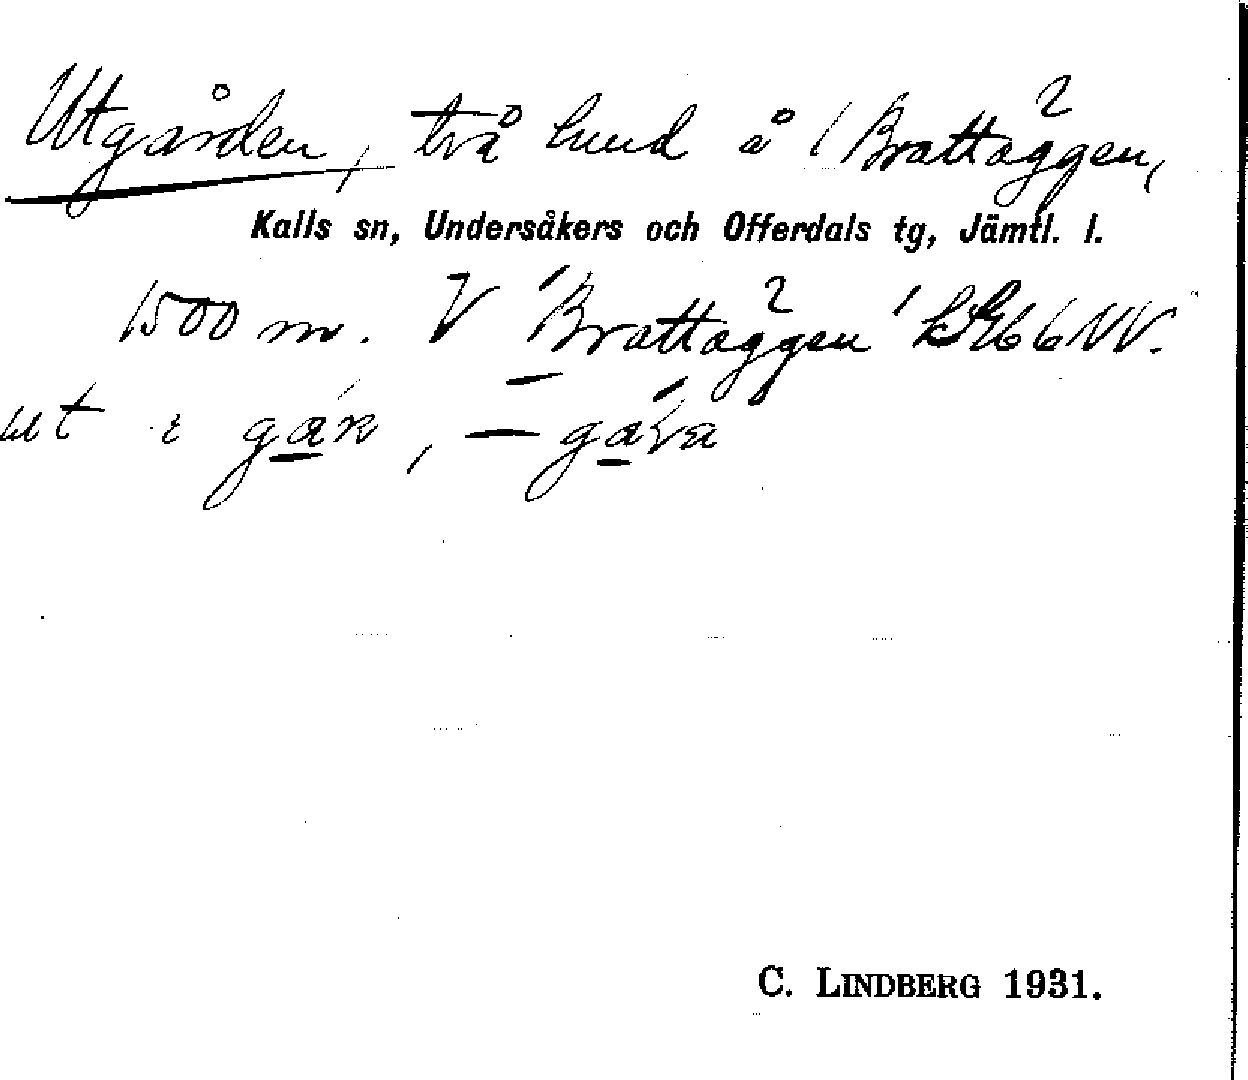 Utgården, två hemd å Brattåggen,
Kalls sn, Undersåkers och Offerdals tg, Jämtl. l.
1500 m. V Brattåggen 66 NV.
ut
C. LINDBERG 1931.